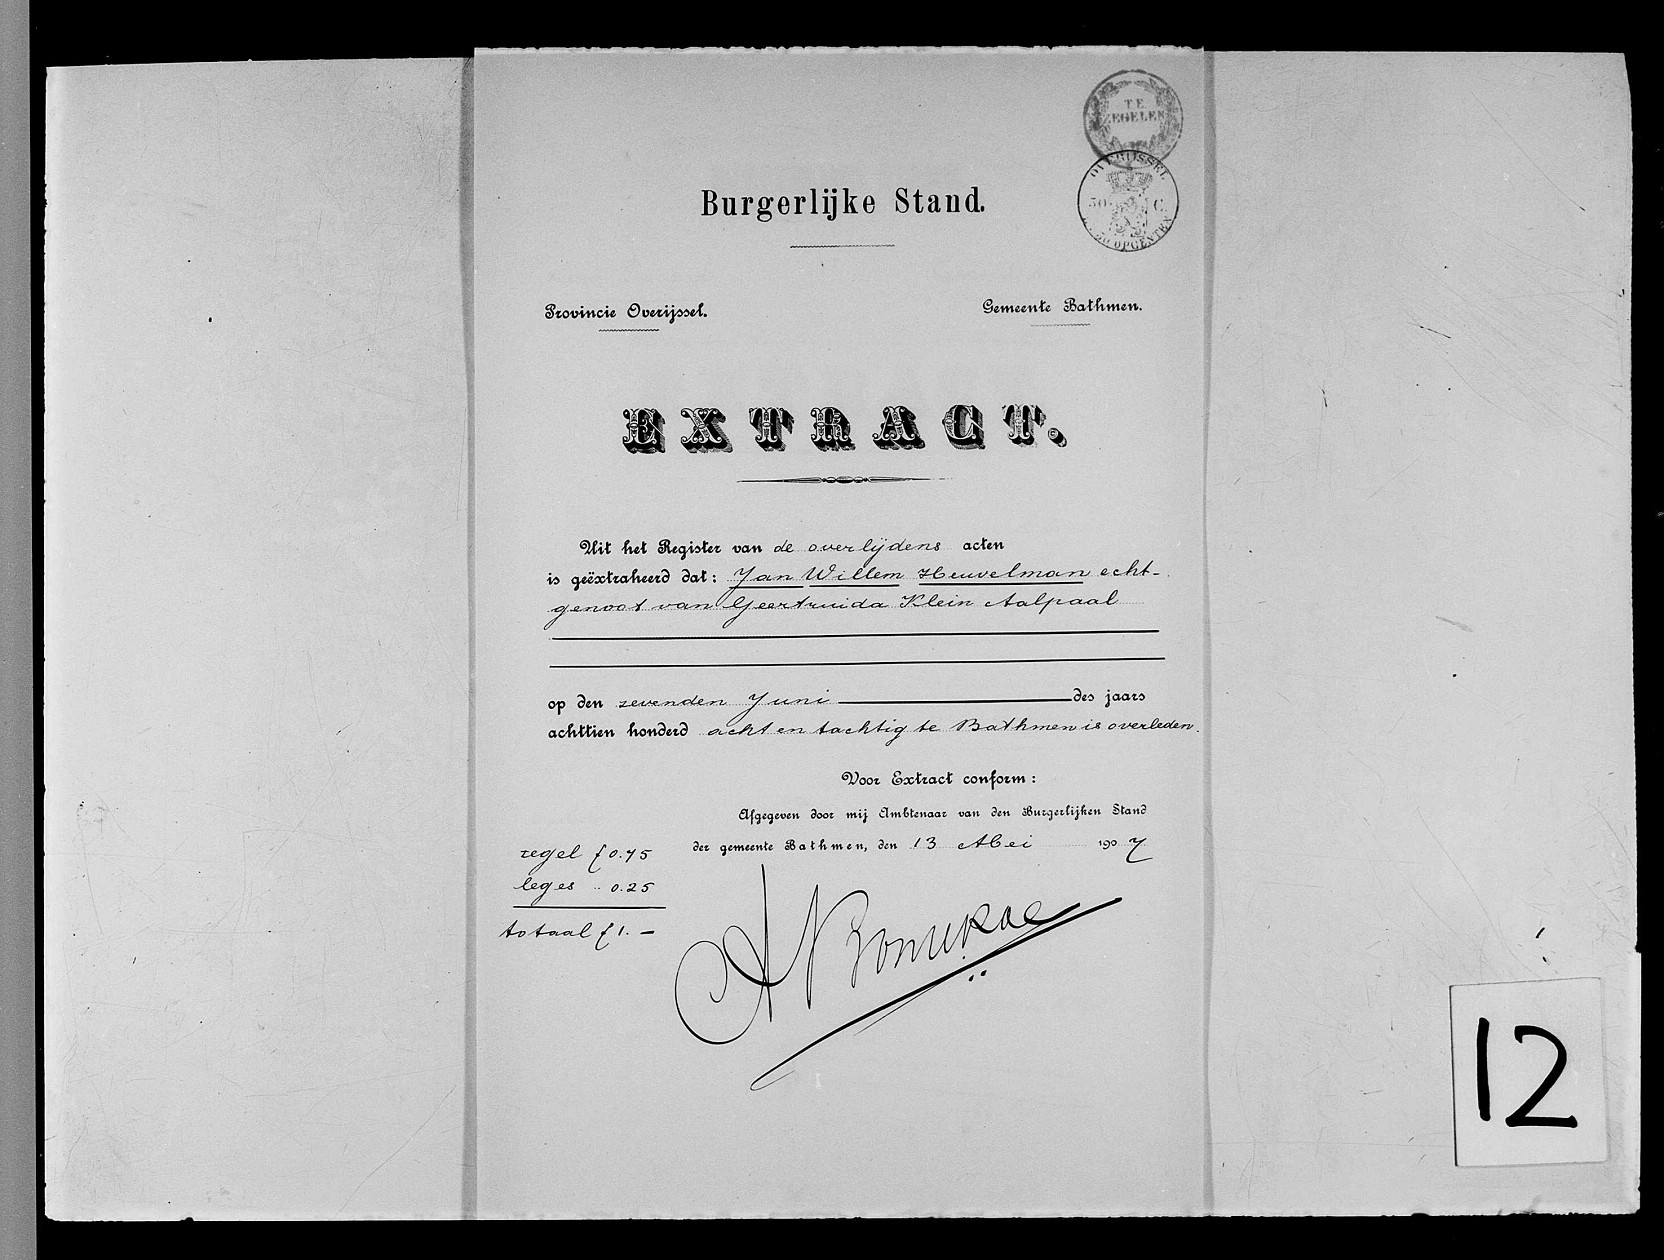 TE
ZEGELEN
OVERIJSSEL
50 C.
OPCENTEN
Burgerlijke Stand.
Provincie Overijssel.
Gemeente Bathmen.
EXTRACT.
Uit het Register van de overlijdens acten
is geëxtraheerd dat: Jan Willem Heuvelman echt-
genoot van Geertruida Klein Aalpaal
op den zevenden Juni des jaars
achttien honderd acht en tachtig te Bathmen is overleden.
Voor Extract conform:
Afgegeven door mij Ambtenaar van den Burgerlijken Stand
der gemeente Bathmen, den 13 Mei 1907
zegel f 0.75
leges " 0.25
totaal f 1.-
12